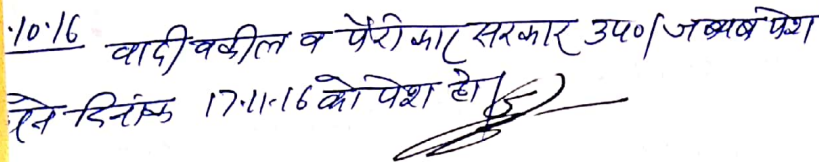 .10.16 वादी वकील व पैरोकार सरकार उप०/जबाब पेश
दिनांक 17.11.16 को पेश हो।